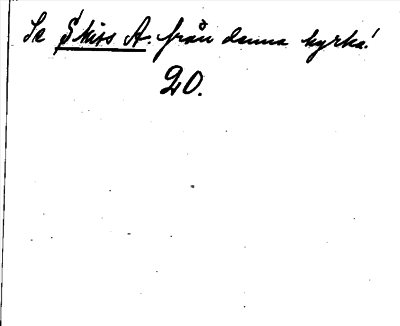 Se Skiss A. från denna kyrka!
20.